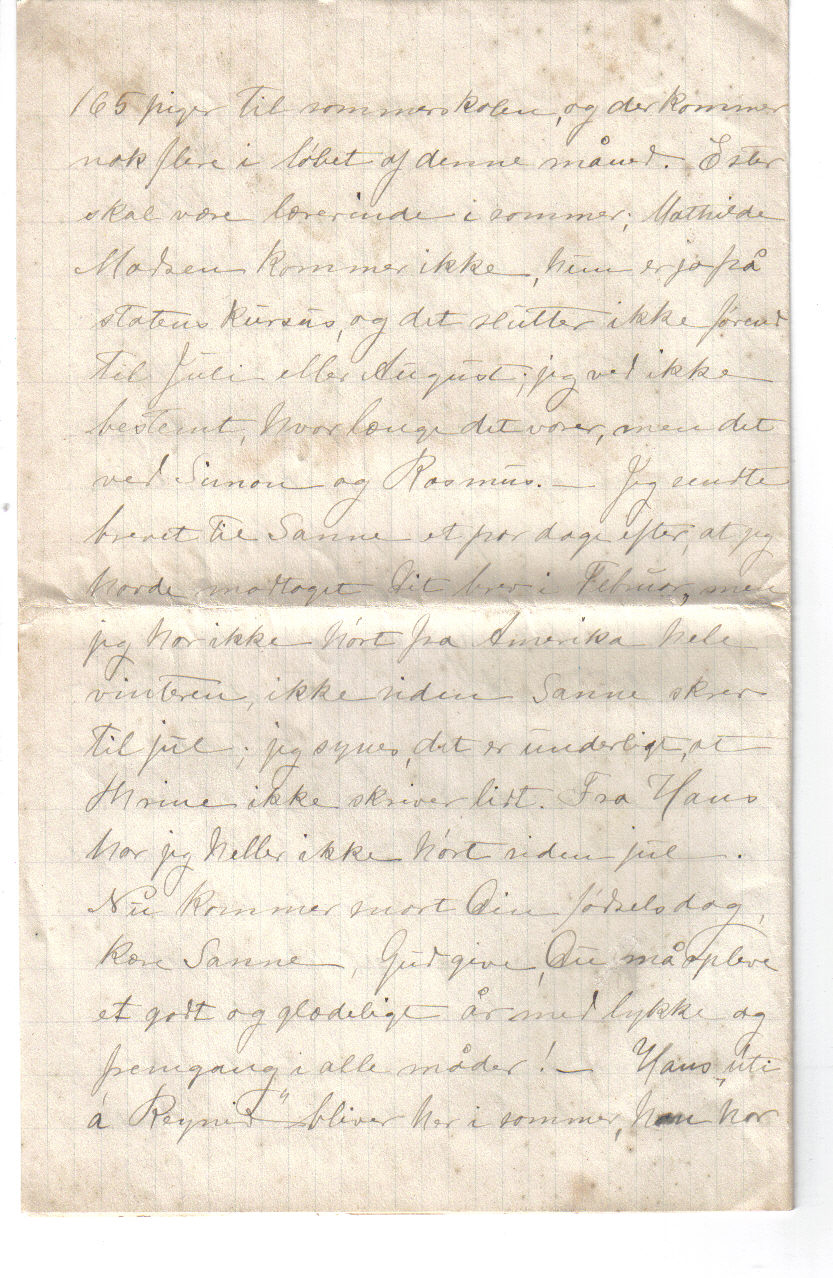 165 piger til sommerskolen, og der kommer
nok flere i løbet af denne måned. Ester
skal være lærerinde i sommer; Mathilde
Madsen kommer ikke, hun er jo på
statens kursus, og det slutter ikke førend
til Juli eller August; jeg ved ikke
bestemt, hvor længe det varer, men det
ved Simon og Rasmus. — Jeg sendte
brevet til Sanne et par dage efter, at jeg
havde modtaget Dit brev i Februar, men
jeg har ikke hørt fra Amerika hele
vinteren, ikke siden Sanne skrev
til jul; jeg synes, det er underligt, at
Thrine ikke skriver lidt. Fra Hans
har jeg heller ikke hørt siden jul.
Nu kommer snart Din fødselsdag,
kære Sanne, Gud give, Du må opleve
et godt og glædeligt år med lykke og
fremgang i alle måder! — Hans „úti
á Reynið" bliver her i sommer, han har